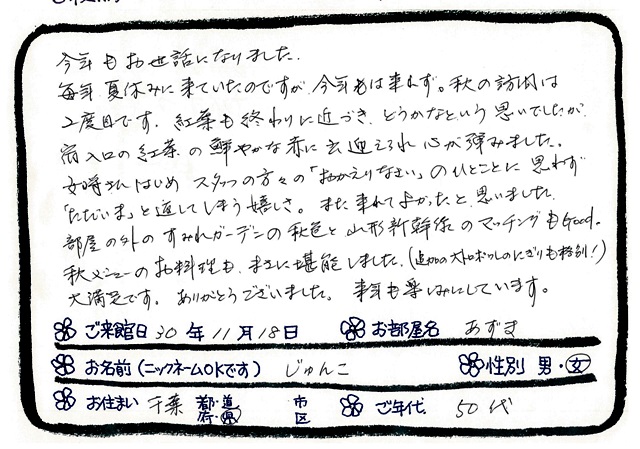 今年もお世話になりました。
毎年夏休みに来ていたのですが、今年は来れず。秋の訪問は
2度目です。紅葉も終わりに近づき、どうかなという思いでしたが、
宿入口の紅葉の鮮やかな赤に出迎えられ心が弾みました。
女将さんはじめ スタッフの方々の「おかえりなさい」のひとことに思わず
「ただいま」と返してしまう嬉しさ。また来れてよかったと思いました。
部屋の外のすみれガーデンの秋色と山形新幹線のマッチングもGood。
秋メニューのお料理も、まさに堪能しました。(追加の大トロホッしのにぎりも格別!)
大満足です。ありがとうございました。来年も楽しみにしています。
ご来館日 30 年 11 月 18 日 お部屋名 あずま
お名前(ニックネームOKです) じゅんこ 性別 男・女
お住まい 千葉 都・道 府・県 市 区 ご年代 50代